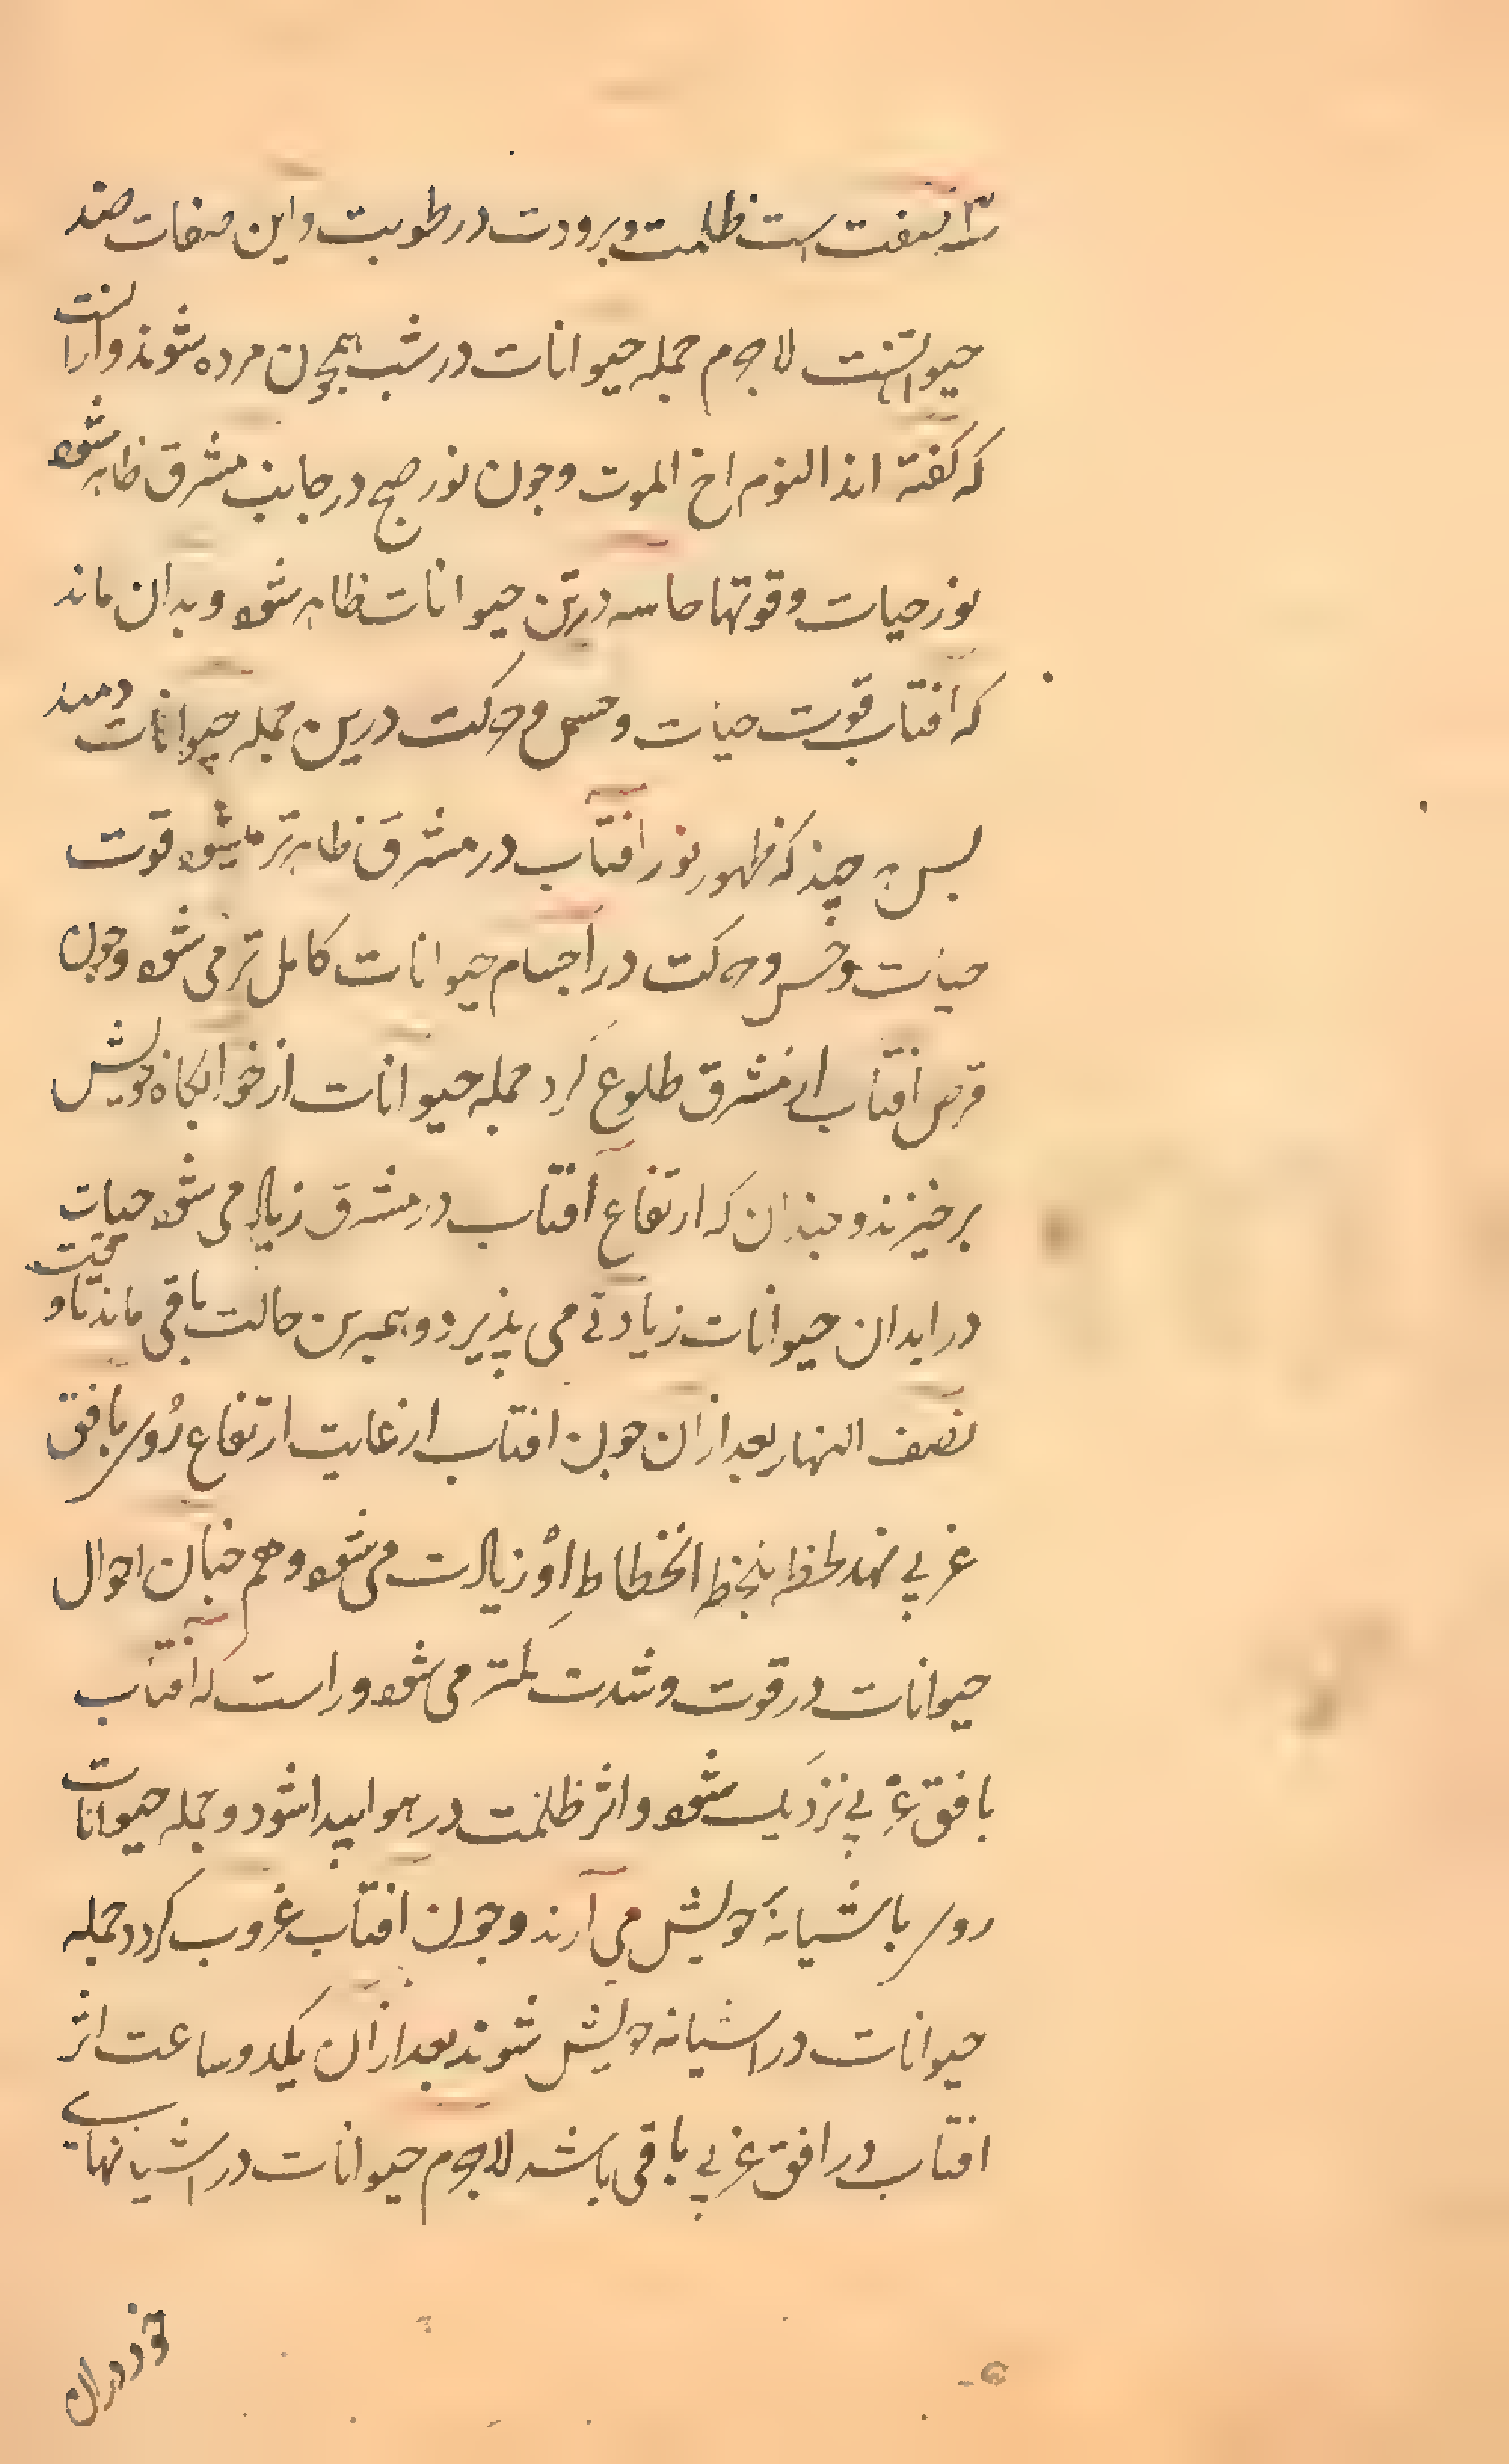 سه صفت است ظلمت و برودت و رطوبت و این صفات ضد
حیواتست لاجرم جمله حیوانات در شب همچون مرده شوند و ازانست
که گفته اند النوم اخ الموت و چون نور صبح در جانب مشرق ظاهر شود
نور حیات و قوتها حاسه در تن حیوانات ظاهر شود و بدان ماند
که آفتاب قوت حیات و حس و حرکت درین جمله حیوانات دمید
پس هر چند که ظهور نور افتاب در مشرق ظاهرتر میشود قوت
حیات و حس و حرکت در اجسام حیوانات کامل تر می شود و چون
قرص افتاب از مشرق طلوع کرد جمله حیوانات از خوابگاه خویش
برخیزند و چندان که ارتفاع آفتاب در مشرق زیاد می شود حیات
در ابدان حیوانات زیادتی می پذیرد و همبرین حالت باقی ماند تا وقت
نصف النهار بعد ازان چون افتاب از غایت ارتفاع روی بافق
غربی نهد لحظه بلحظه انحطاط او زیادت می شود و هم چنان احوال
حیوانات در قوت و شدت کمتر می شود و راست که آفتاب
بافق غربی نزدیک شود و اثر ظلمت در هوا پیدا شود و جمله حیوانات
روی باشیانه خویش می آرند و چون افتاب غروب کرد جمله
حیوانات در اشیانه خویش شوند بعد ازان یکدو ساعت اثر
افتاب در افق غربی باقی باشد لاجرم حیوانات در اشیانهای